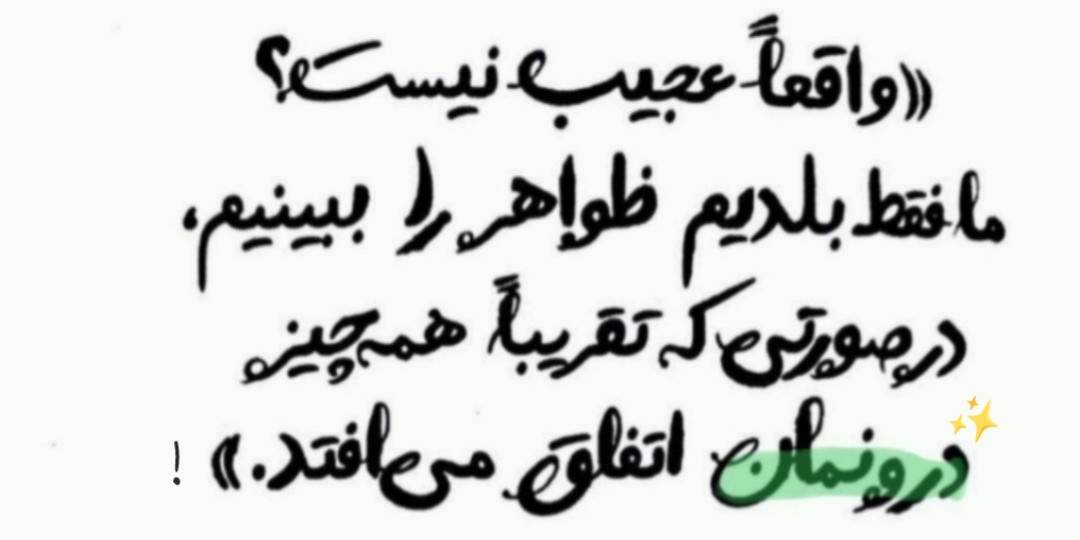 «واقعاً عجیب نیست؟
ما فقط بلدیم ظواهر را ببینیم،
در صورتی که تقریباً همه چیز
درونمان اتفاق می‌افتد.» !